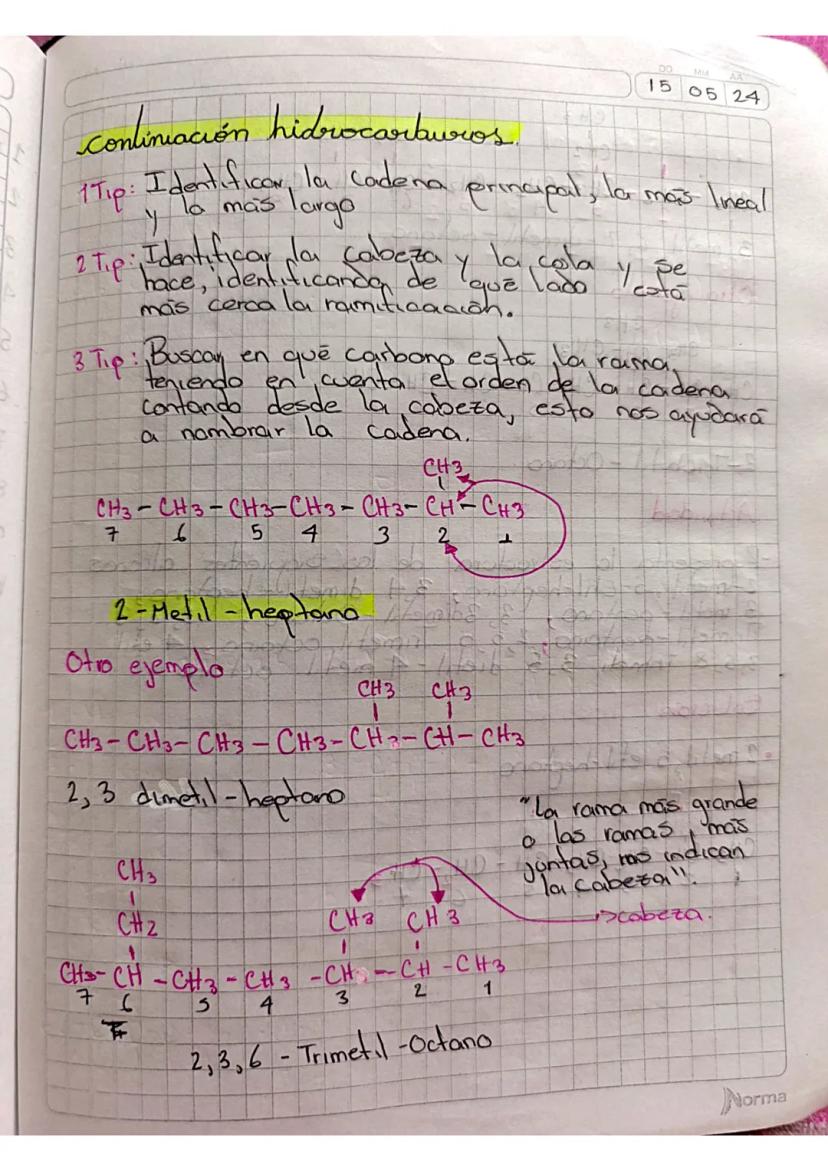 DD MM AA
15 05 24
continuación hidrocarburos.
1 Tip: Identificar la cadena principal, la más lineal
y la más largo
2 Tip: Identificar la cabeza y la cola y se
hace, identificando de que lado está
más cerca la ramificación.
3 Tip: Buscar en qué carbono está la rama,
teniendo en cuenta el orden de la cadena
contando desde la cabeza, esto nos ayudará
a nombrar la cadena.
CH3
CH3 - CH3 - CH3 - CH3 - CH3 - CH - CH3
7 6 5 4 3 2 1
2 - Metil - heptano
Otro ejemplo
CH3 CH3
CH3 - CH3 - CH3 - CH3 - CH - CH - CH3
2, 3 dimetil - heptano
"La rama más grande
o las ramas, más
juntas, nos indican
la cabeza".
CH3
CH2 CH3 CH3 cabeza.
CH3 - CH - CH3 - CH3 - CH - CH - CH3
7 6 5 4 3 2 1
7
2, 3, 6 - Trimetil - Octano
Norma